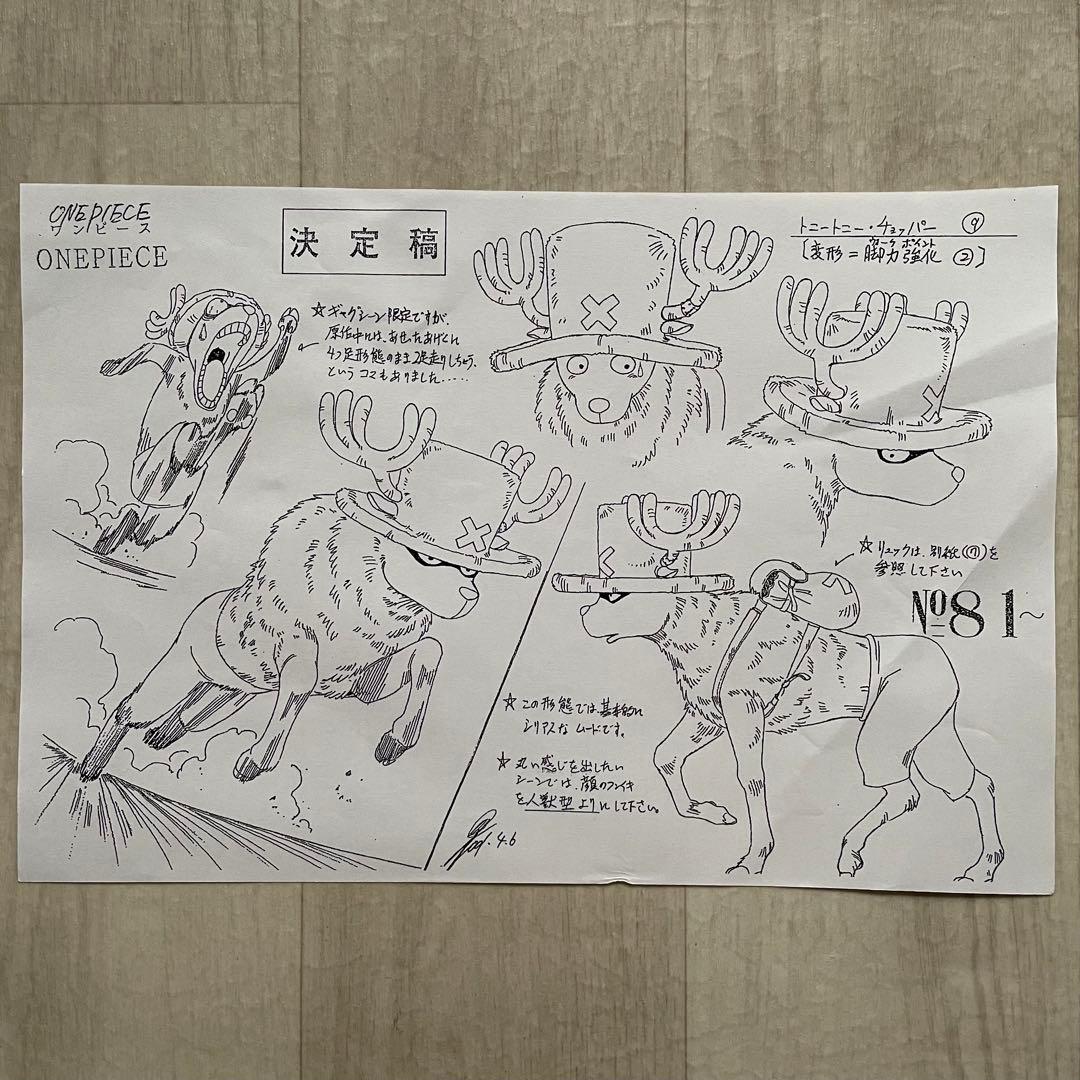 ONE PIECE
ワンピース
ONEPIECE
決定稿
トニートニー・チョッパー ⑨
ウォーク ポイント
[変形=脚力強化 ②]
☆ギャグシーン限定ですが、
原作中には、あせったあげくに
4つ足形態のまま2足走りしちゃう、
という コマもありました.....
☆リュックは、別紙(⑦)を
参照して下さい
No81~
☆この形態では、基本的に
シリアスな ムードです。
☆丸い感じを出したい
シーンでは、顔のフンイキ
を人獣型よりにして下さい。
'01. 4.6